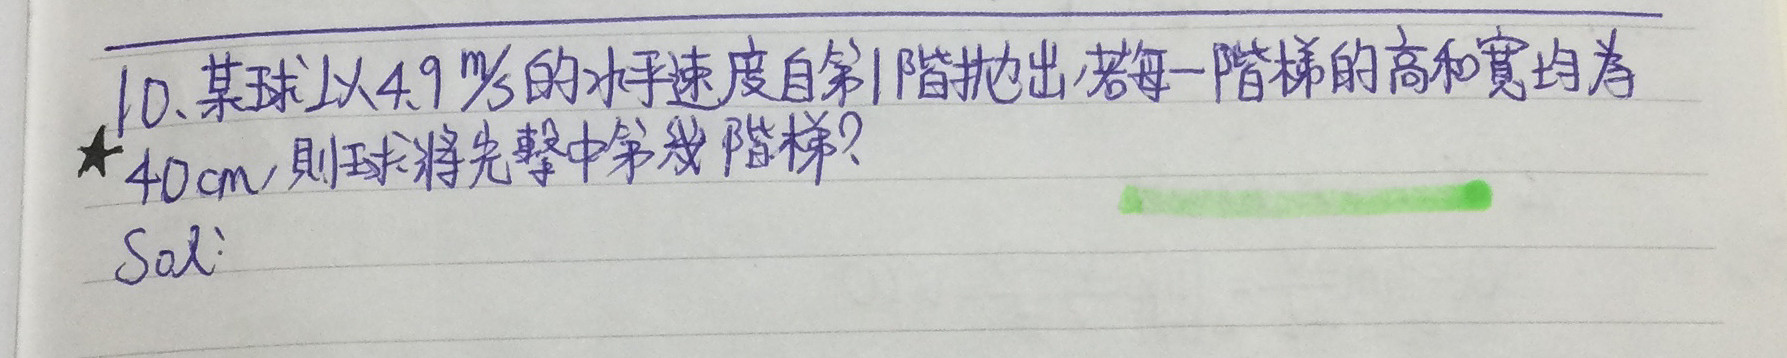 10、某球以4.9 m/s的水平速度自第1階拋出,若每一階梯的高和寬均為
★40cm,則球將先擊中第幾階梯?
Sol: